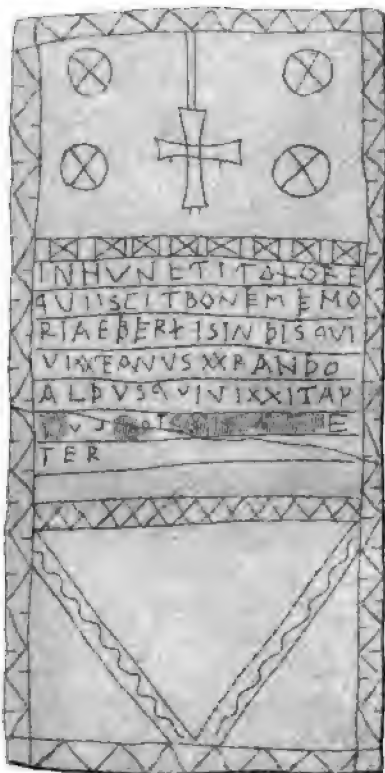 INHVNETITOLORE
QVIISCITBONEMEMO
RIAEBERTISINDISQVI
VIXXTANVSXXRANDO
ALDVSQVIVIXXITAP
E
TER